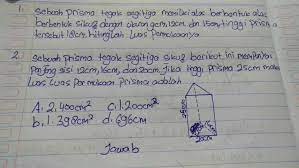 1. Sebuah Prisma tegak segitiga memiliki alas berbentuk
berbentuk siku² dengan ukuran 9cm, 12cm dan 15cm tinggi Prisma
tersebut 18cm, hitunglah luas Permukaannya
2. Sebuah Prisma tegak segitiga siku² berikut ini mempunyai
Panjang sisi 12cm, 16cm, dan 20cm. Jika tinggi Prisma 25cm maka
luas Permukaan Prisma adalah
A. 2.400cm² c. 1.200cm²
b. 1.398cm² d. 696cm
25cm
20cm
Jawab